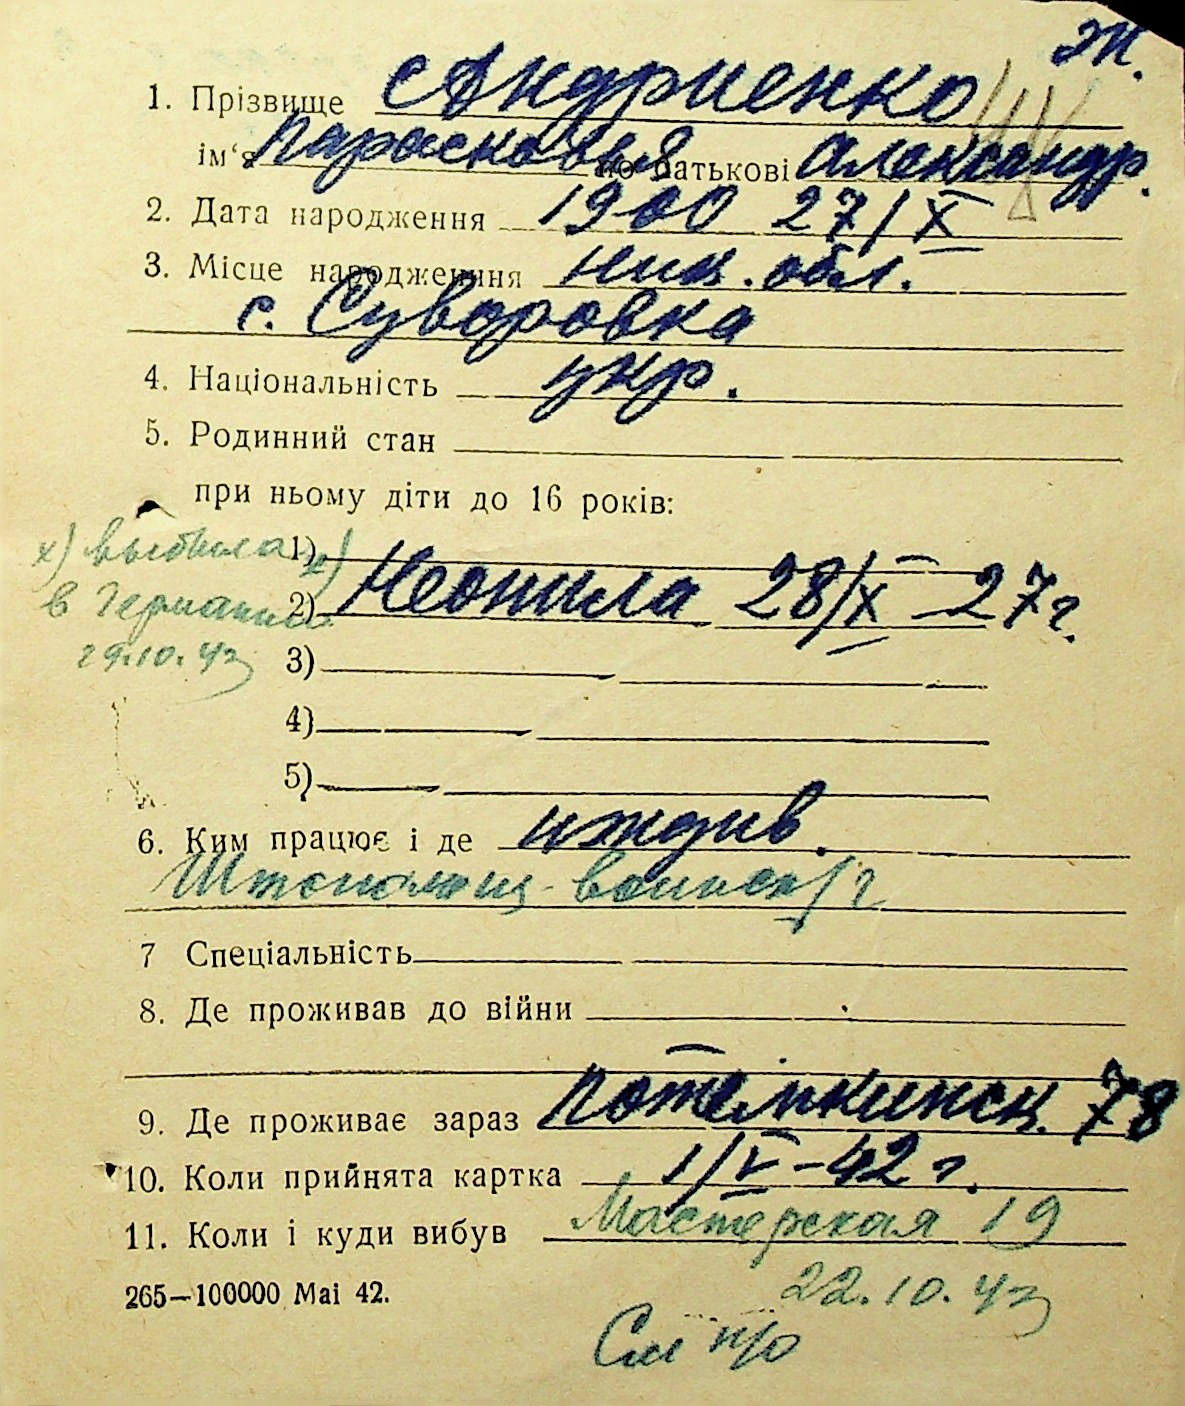 Ж.
1. Прізвище Андриенко
ім‘я Парасковья по батькові Александр.
2. Дата народження 1900 27/X
3. Місце народження Ник. обл.
с. Суворовка
4. Національність укр.
5. Родинний стан
при ньому діти до 16 років:
х) выбыла 1)
в Германию 2) х) Неонила 28/X 27 г.
29.10.43 3)
4)
5)
6. Ким працює і де иждив.
7 Спеціальність
8. Де проживав до війни
9. Де проживає зараз Потемкинск. 78
10. Коли прийнята картка 1/V-42 г.
11. Коли і куди вибув Мастерская 19
265—100000 Mai 42.
22.10.43
См н/о